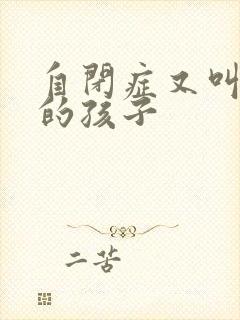 自閉症又叫
的孩子
二苦